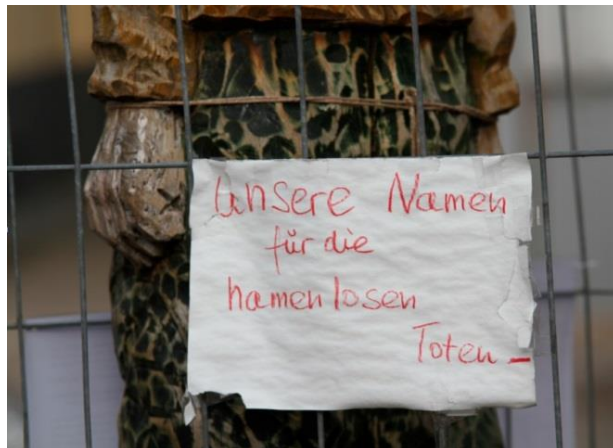 Unsere Namen
für die
namenlosen
Toten_